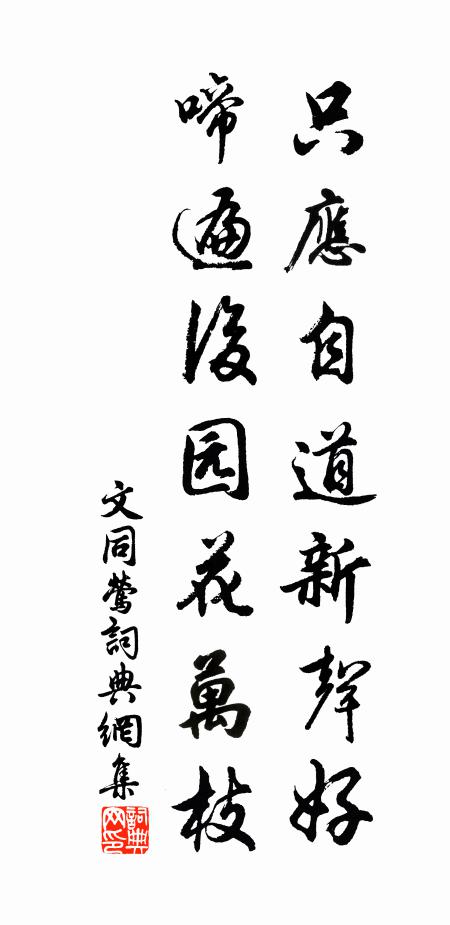 只應自道新聲好
啼遍後园花萬枝
文同鶯詞典網集
詞典网印